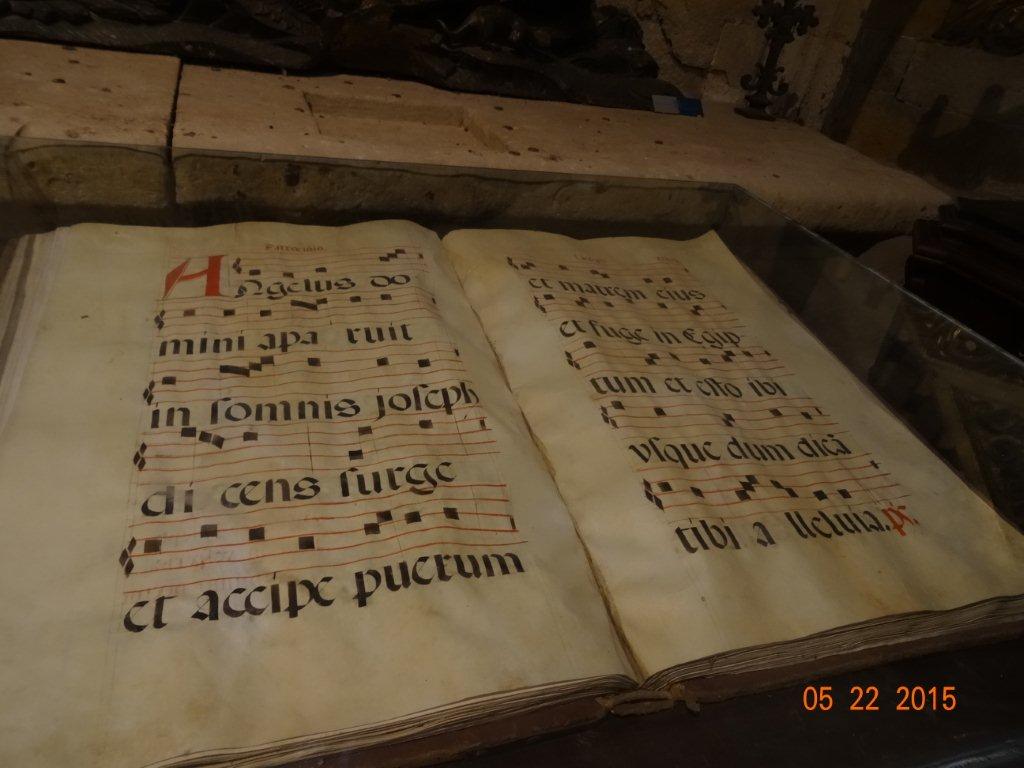 Angelus do
mini apa ruit
in somnis joseph
di cens surge
et accipe puerum
et matrem eius
et fuge in Egip
tum et esto ibi
vsque dum dicā
tibi a lleluia. ps.
05 22 2015